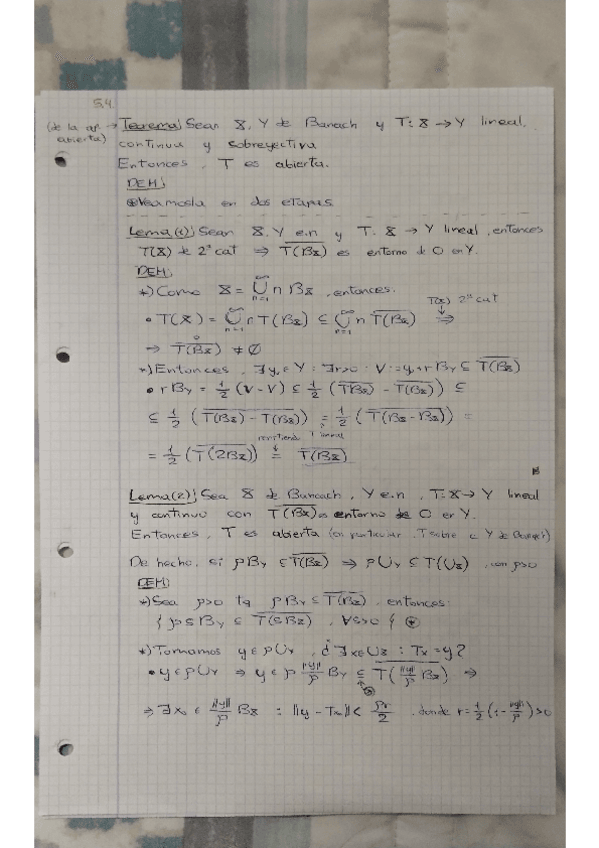 5.4
(de la ap. abierta) → Teorema: Sean X, Y de Banach y T: X → Y lineal,
continua y sobreyectiva
Entonces, T es abierta.
DEM:
⊛ Veámosla en dos etapas
Lema(1): Sean X, Y e.n y T: X → Y lineal, entonces
T(X) de 2ª cat ⇒ \overline{T(B_X)} es entorno de 0 en Y.
DEM:
*) Como X = ⋃_{n=1}^∞ n B_X, entonces:
• T(X) = ⋃_{n=1}^∞ n T(B_X) ⊆ ⋃_{n=1}^∞ n \overline{T(B_X)} ⇒ T(X) 2ª cat
⇒ \overline{T(B_X)}° ≠ ∅
*) Entonces, ∃ y_0 ∈ Y : ∃ r>0 : V := y_0 + r B_Y ⊆ \overline{T(B_X)}
• r B_Y = 1/2 (V - V) ⊆ 1/2 (\overline{T(B_X)} - \overline{T(B_X)}) ⊆
⊆ 1/2 (\overline{T(B_X) - T(B_X)}) = 1/2 (\overline{T(B_X - B_X)}) =
= 1/2 (\overline{T(2B_X)}) = \overline{T(B_X)}
T lineal
Lema(2): Sea X de Banach, Y e.n, T: X → Y lineal
y continua con \overline{T(B_X)} es entorno de 0 en Y.
Entonces, T es abierta (en particular, T sobre e Y de Banach)
De hecho, si ρB_Y ⊆ \overline{T(B_X)} ⇒ ρU_Y ⊆ T(U_X), con ρ>0
DEM:
*) Sea ρ>0 tq ρB_Y ⊆ \overline{T(B_X)}, entonces:
{ ρδB_Y ⊆ \overline{T(δB_X)}, ∀δ>0 { ⊛
*) Tomamos y ∈ ρU_Y, ¿∃ x ∈ U_X : Tx = y?
• y ∈ ρU_Y ⇒ y ∈ ρ ‖y‖/ρ B_Y ⊆ \overline{T(‖y‖/ρ B_X)} ⇒
⊛
⇒ ∃ x_0 ∈ ‖y‖/ρ B_X : ‖y - Tx_0‖ < ρr/2, donde r = 1/2 (1 - ‖y‖/ρ) > 0